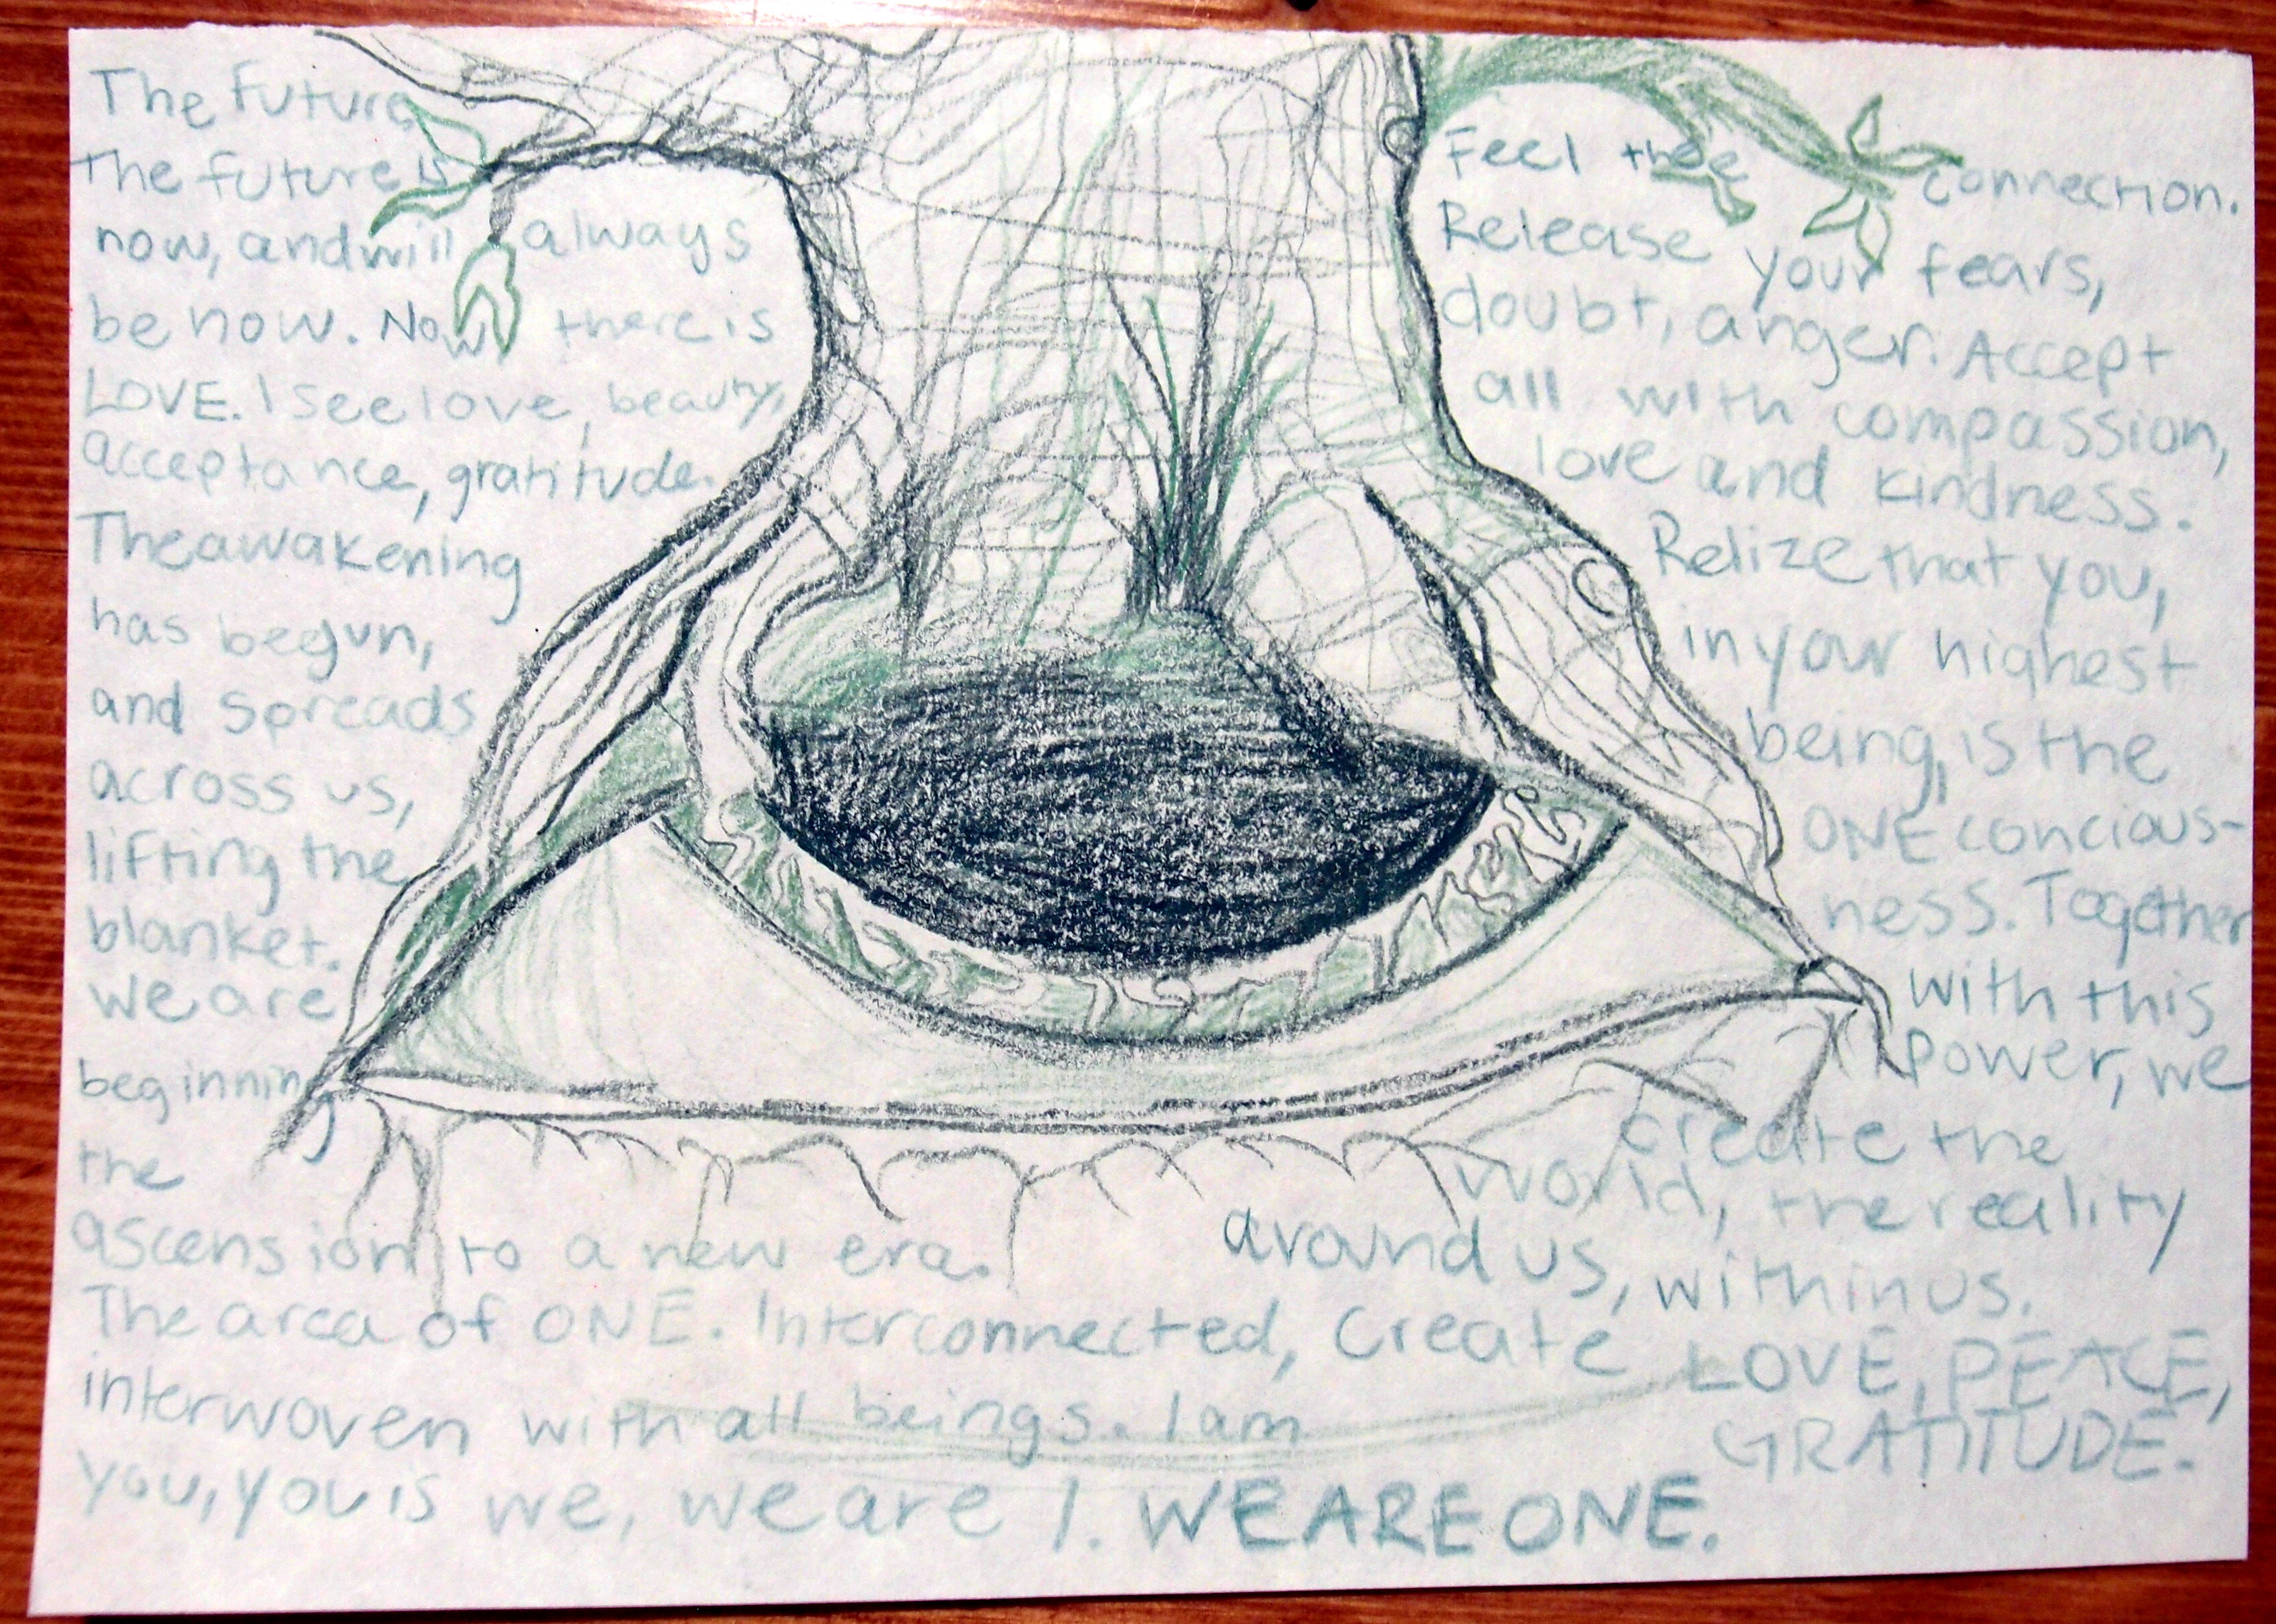 The future,
the future is
now, and will always
be now. Now, there is
LOVE. I see love, beauty,
acceptance, gratitude.
The awakening
has begun,
and spreads
across us,
lifting the
blanket.
We are
beginning
the
ascension to a new era.
The area of ONE. Interconnected,
interwoven with all beings. I am
you, you is we, we are 1. WE ARE ONE.
Feel the connection.
Release your fears,
doubt, anger. Accept
all with compassion,
love and kindness.
Relize that you,
in your highest
being, is the
ONE concious-
ness. Together
with this
power, we
create the
world, the reality
around us, within us.
Create LOVE, PEACE,
GRATITUDE.